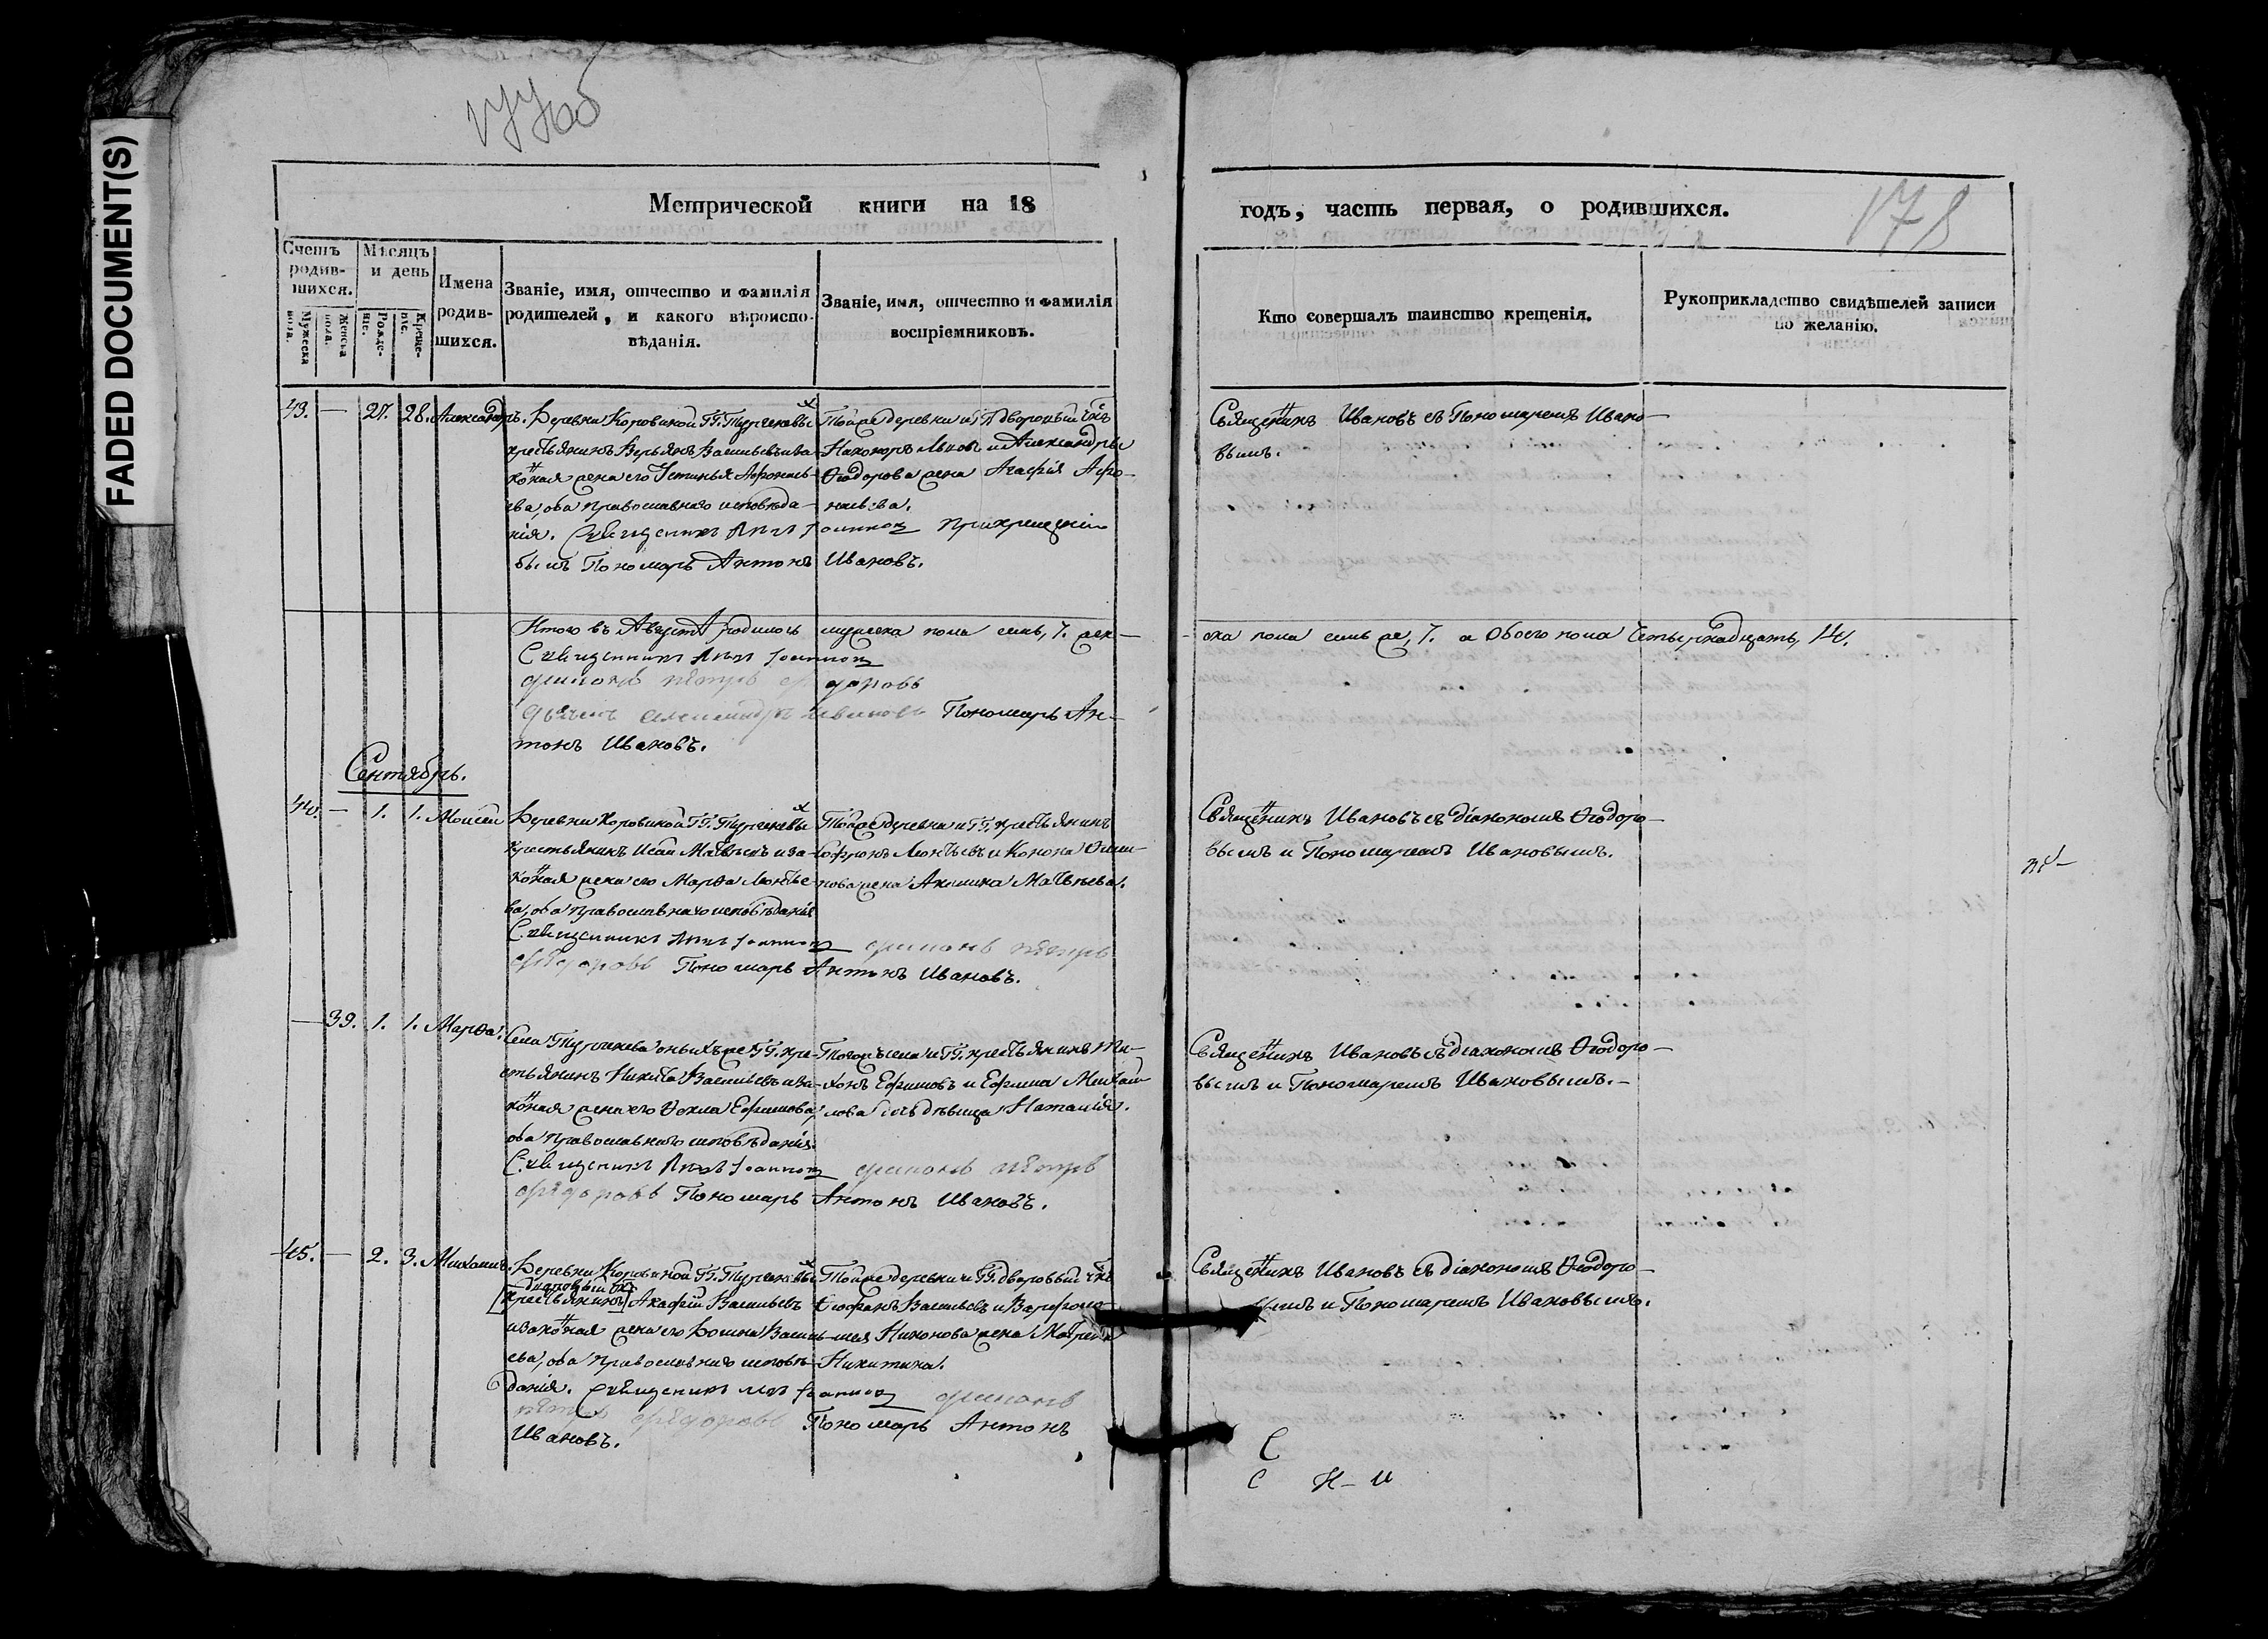 FADED DOCUMENT(S)
177 об
178
Метрической книги на 18
годъ, часть первая, о родившихся.
Счетъ родив-шихся.
Мужеска пола.
Женска пола.
Мѣсяцъ и день
Рожде-ніе.
Креще-ніе.
Имена родив-шихся.
Званіе, имя, отчество и фамилія родителей, и какого вѣроиспо-вѣданія.
Званіе, имя, отчество и фамилія воспріемниковъ.
Кто совершалъ таинство крещенія.
Рукоприкладство свидѣтелей записи по желанію.
43. — 27. 28. Александръ.
Деревни Коровиной ГГ. Тургеневыхъ
крестьянинъ Васильевъ и за-
конная жена его Устинья Афонась-
ева, оба православнаго исповѣда-
нія. Священникъ Іоанновъ при крещеніи
былъ Пономарь Антонъ Ивановъ.
Тойже деревни и ГГ. дворовый
Никоноръ Львовъ и Александры
Ѳеодорова жена Агафія Афо-
насьева.
Священникъ Ивановъ съ Пономаремъ Ивано-
вымъ.
Итого въ Августѣ родилось мужеска пола семь, 7. жен-
ска пола семь же, 7. а обоего пола четырнадцать, 14.
Священникъ Іоанновъ
диаконъ петръ федоровъ
дьячекъ александръ ивановъ Пономарь Ан-
тонъ Ивановъ.
Сентябрь.
44. — 1. 1. Моисей
Деревни Коровиной ГГ. Тургеневыхъ
крестьянинъ Исай Матвѣевъ и за-
конная жена его Марѳа Леонтье-
ва, оба православнаго исповѣданія
Священникъ Іоанновъ диаконъ петръ
федоровъ Пономарь Антонъ Ивановъ.
Тойже деревни и ГГ. крестьянинъ
Софронъ Леонтьевъ и Конона
жена Акилина Матвѣева.
Священникъ Ивановъ съ діакономъ Ѳеодоро-
вымъ и Пономаремъ Ивановымъ.
— 39. 1. 1. Марѳа.
Села Тургенева оныхъ же ГГ. кре-
стьянинъ Никита Васильевъ и за-
конная жена его Ѳекла Ефимова,
оба православнаго исповѣданія.
Священникъ Іоанновъ диаконъ петръ
федоровъ Пономарь Антонъ Ивановъ.
Тогожъ села и ГГ. крестьянинъ Ти-
хонъ Ефимовъ и Ефима Михай-
лова дочь дѣвица Наталія.
Священникъ Ивановъ съ діакономъ Ѳеодоро-
вымъ и Пономаремъ Ивановымъ.
45. — 2. 3. Михаилъ.
Деревни Коровиной ГГ. Тургеневыхъ
дворовый
[крестьянинъ] Васильевъ
и законная жена его Василь-
ева, оба православнаго исповѣ-
данія. Священникъ Іоанновъ диаконъ
петръ федоровъ Пономарь Антонъ
Ивановъ.
Тойже деревни и ГГ. дворовый
Васильевъ и Варфоло-
мея Никонова жена
Никитина.
Священникъ Ивановъ съ діакономъ Ѳеодоро-
вымъ и Пономаремъ Ивановымъ.
С
С Н – И